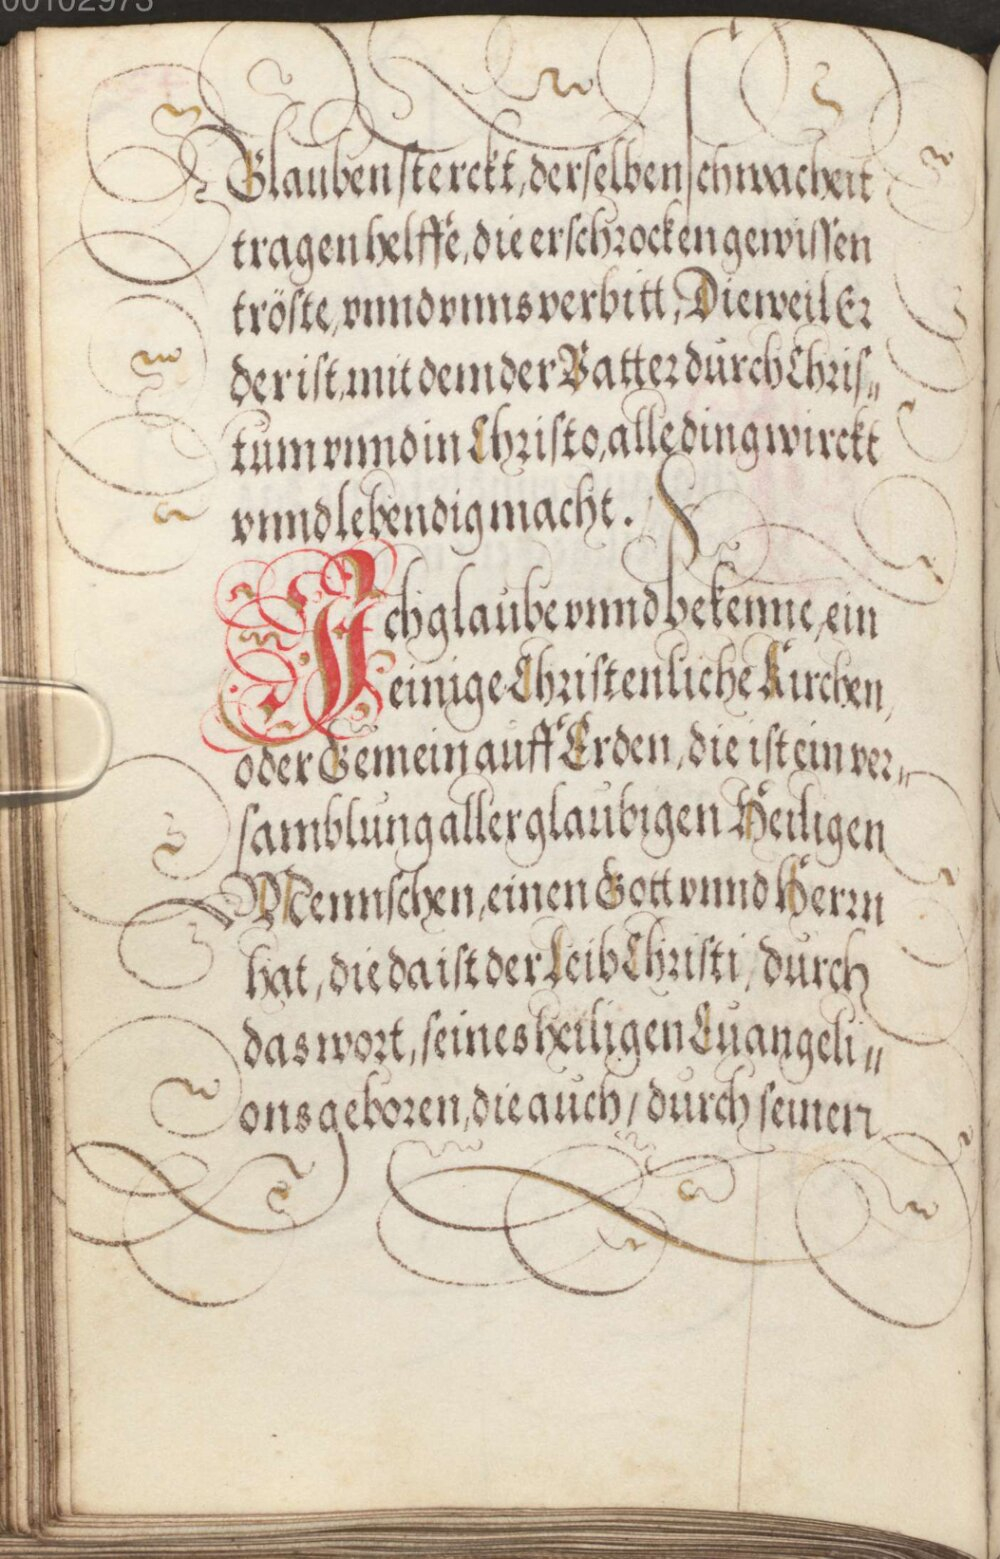 00102973
Glauben sterckt, derselben schwacheit
tragen helffe, die erschrocken gewissen
tröste, vnnd vnns verbitt, Dieweil Er
der ist, mit dem der Vatter durch Chris„
tum vnnd in Christo, alle ding wirckt
vnnd lebendig macht.
Ich glaube vnnd bekenne, ein
einige Christenliche Kirchen,
oder Gemein auff Erden, die ist ein ver„
samblung aller glaubigen Heiligen
Mennschen, einen Gott vnnd Herrn
hat, die da ist der Leib Christi, durch
das wort, seines heiligen Euangeli„
ons geboren, die auch / durch seinen